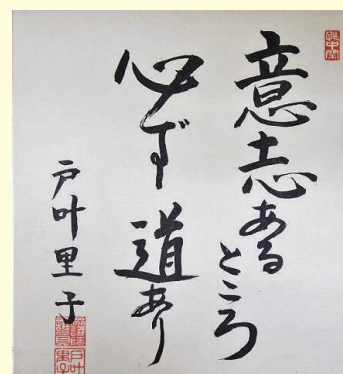 意志あるところ
必ず道あり
戸叶里子